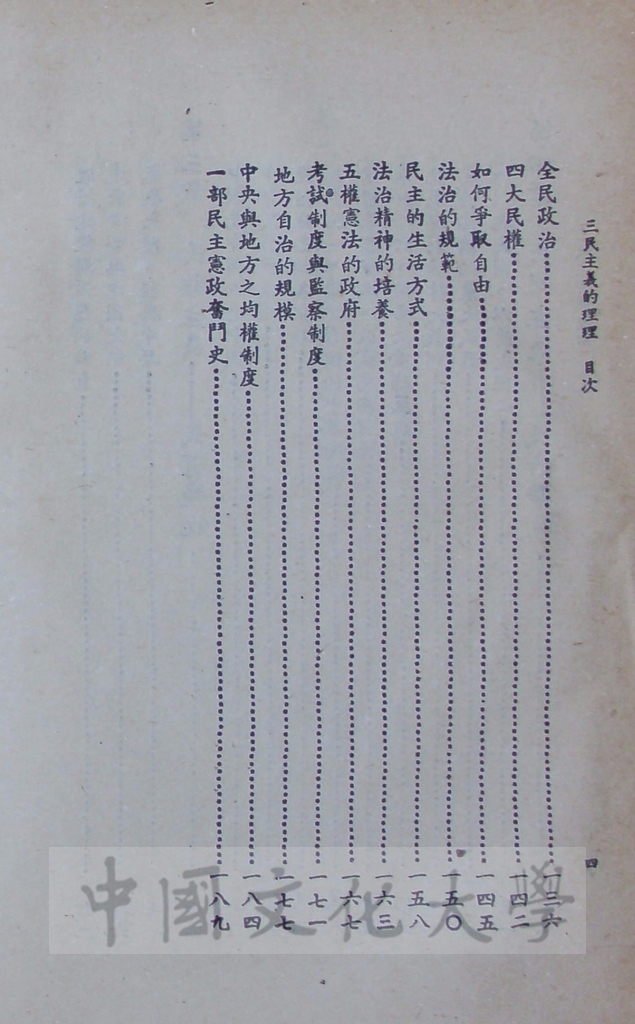 三民主義的理理 目次 四
全民政治 一三六
四大民權 一四二
如何爭取自由 一四五
法治的規範 一五〇
民主的生活方式 一五八
法治精神的培養 一六三
五權憲法的政府 一六七
考試制度與監察制度 一七一
地方自治的規模 一七七
中央與地方之均權制度 一八四
一部民主憲政奮鬥史 一八九
中國文化大學